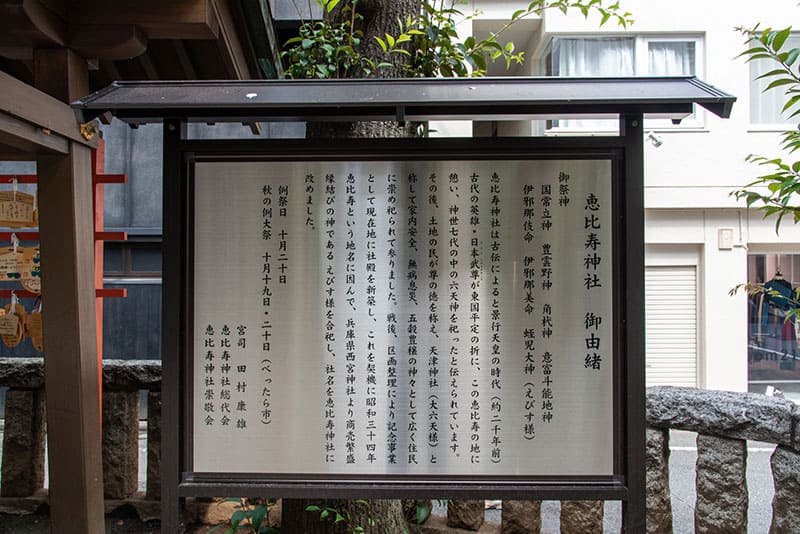 恵比寿神社 御由緒
御祭神
国常立神 豊雲野神 角杙神 意富斗能地神
伊邪那伎命 伊邪那美命 蛭児大神(えびす様)
恵比寿神社は古伝によると景行天皇の時代(約二千年前)
古代の英雄・日本武尊が東国平定の折に、この恵比寿の地に
憩い、神世七代の中の六天神を祀ったと伝えられています。
その後、土地の民が尊の徳を称え、天津神社(大六天様)と
称して家内安全、無病息災、五穀豊穣の神々として広く住民
に崇め祀られて参りました。戦後、区画整理により記念事業
として現在地に社殿を新築し、これを契機に昭和三十四年
恵比寿という地名に因んで、兵庫県西宮神社より商売繁盛
縁結びの神である えびす様を合祀し、社名を恵比寿神社に
改めました。
例祭日 十月二十日
秋の例大祭 十月十九日・二十日(べったら市)
宮司 田村康雄
恵比寿神社総代会
恵比寿神社崇敬会